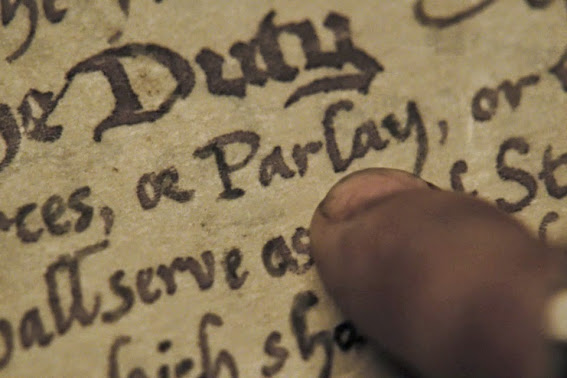 Duty
rces, or Parlay, or
hall serve as
hich sha